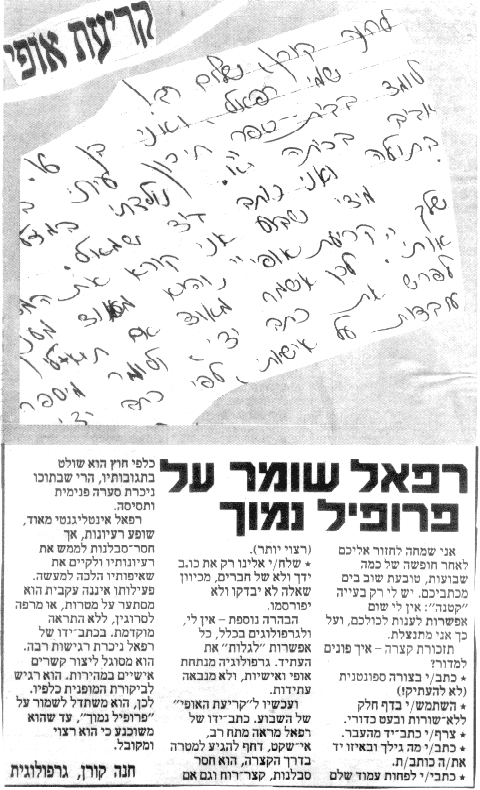 קריעת אופי
לחנה קורן, שלום רב!
שמי רפאל ואני בן
לומד בבית-ספר תיכון
אביב בכיתה נולדתי
בתולה ואני כותב ביד שמאל.
מידי שבוע אני קורא את
שלך "קריעת אופי" והוא מאוד
אותי. לכן אשמח מאוד אם
לפרש את כתב ידי, ולומר מיספר
עובדות על אישיותי לפי כתב ידי
רפאל שומר על
פרופיל נמוך
אני שמחה לחזור אליכם
לאחר חופשה של כמה
שבועות, טובעת שוב בים
מכתביכם. יש לי רק בעייה
"קטנה": אין לי שום
אפשרות לענות לכולכם, ועל
כך אני מתנצלת.
תזכורת קצרה – איך פונים
למדור?
★ כתב/י בצורה ספונטנית
(לא להעתיק!)
★ השתמש/י בדף חלק
ללא-שורות ובעט כדורי.
★ צרף/י כתב-יד מהעבר.
★ כתב/י מה גילך ובאיזו יד
את/ה כותב/ת.
★ כתב/י לפחות עמוד שלם
(רצוי יותר).
★ שלח/י אלינו רק את כ.ב
ידך ולא של חברים, מכיוון
שאלה לא יבדקו ולא
יפורסמו.
הבהרה נוספת – אין לי,
ולגרפולוגים בכלל, כל
אפשרות "לגלות" את
העתיד. גרפולוגיה מנתחת
אופי ואישיות, ולא מנבאה
עתידות.
ועכשיו ל"קריעת האופי"
של השבוע. כתב-ידו של
רפאל מראה מתח רב,
אי-שקט, דחף להגיע למטרה
בדרך הקצרה, הוא חסר
סבלנות, קצר-רוח וגם אם
כלפי חוץ הוא שולט
בתגובותיו, הרי שבתוכו
ניכרת סערה פנימית
ותסיסה.
רפאל אינטליגנטי מאוד,
שופע רעיונות, אך
חסר-סבלנות לממש את
רעיונותיו ולקיים את
שאיפותיו הלכה למעשה.
פעילותו איננה עקבית הוא
מסתער על מטרות, או מרפה
לסרוגין, ללא התראה
מוקדמת. בכתב-ידו של
רפאל ניכרת רגישות רבה.
הוא מסוגל ליצור קשרים
אישיים במהירות. הוא רגיש
לביקורת המופנית כלפיו.
לכן, הוא משתדל לשמור על
"פרופיל נמוך", עד שהוא
משוכנע כי הוא רצוי
ומקובל.
חנה קורן, גרפולוגית